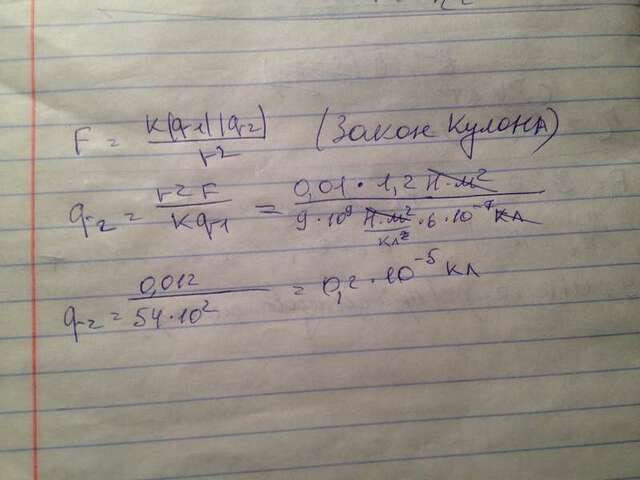 F = K|q1||q2| / r2 (Закон Кулона)
q2 = r2 F / K q1 = 0,01 · 1,2 Н·м2 / 9·10^9 Н·м2/Кл2 · 6·10^-7 Кл
q2 = 0,012 / 54·10^2 = 0,2·10^-5 Кл